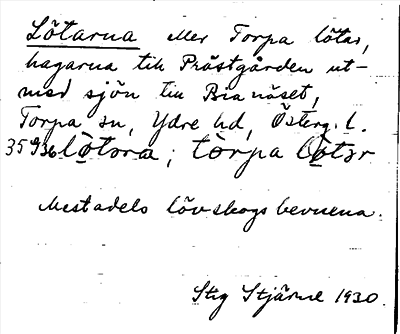 Lötarna eller Torpa lötar,
hagarna till Prästgården ut-
med sjön till Bianäset,
Torpa sn, Ydre hd, Österg. l.
35936 lòtara; tòrpa lòtər
Mestadels lövskogsbevuxna.
Stig Stjärne 1930.